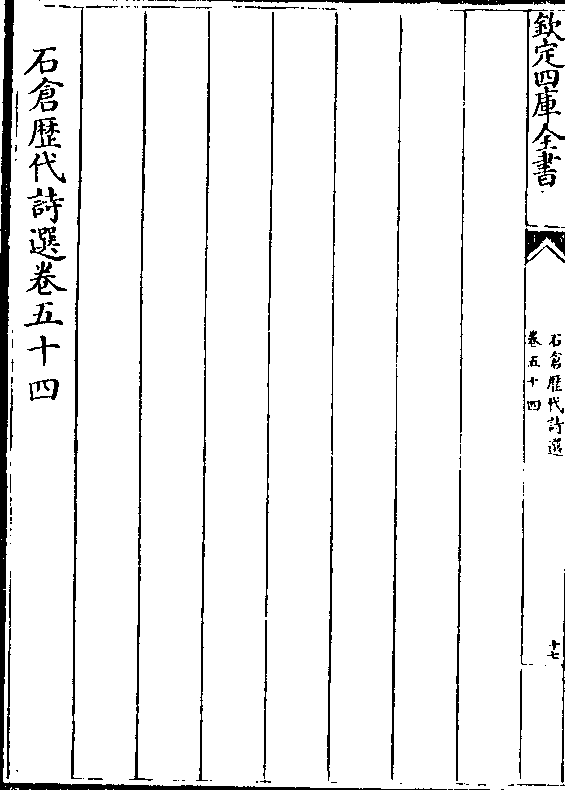 欽定四庫全書
石倉歴代詩選
卷五十四
十七
石倉歴代詩選卷五十四